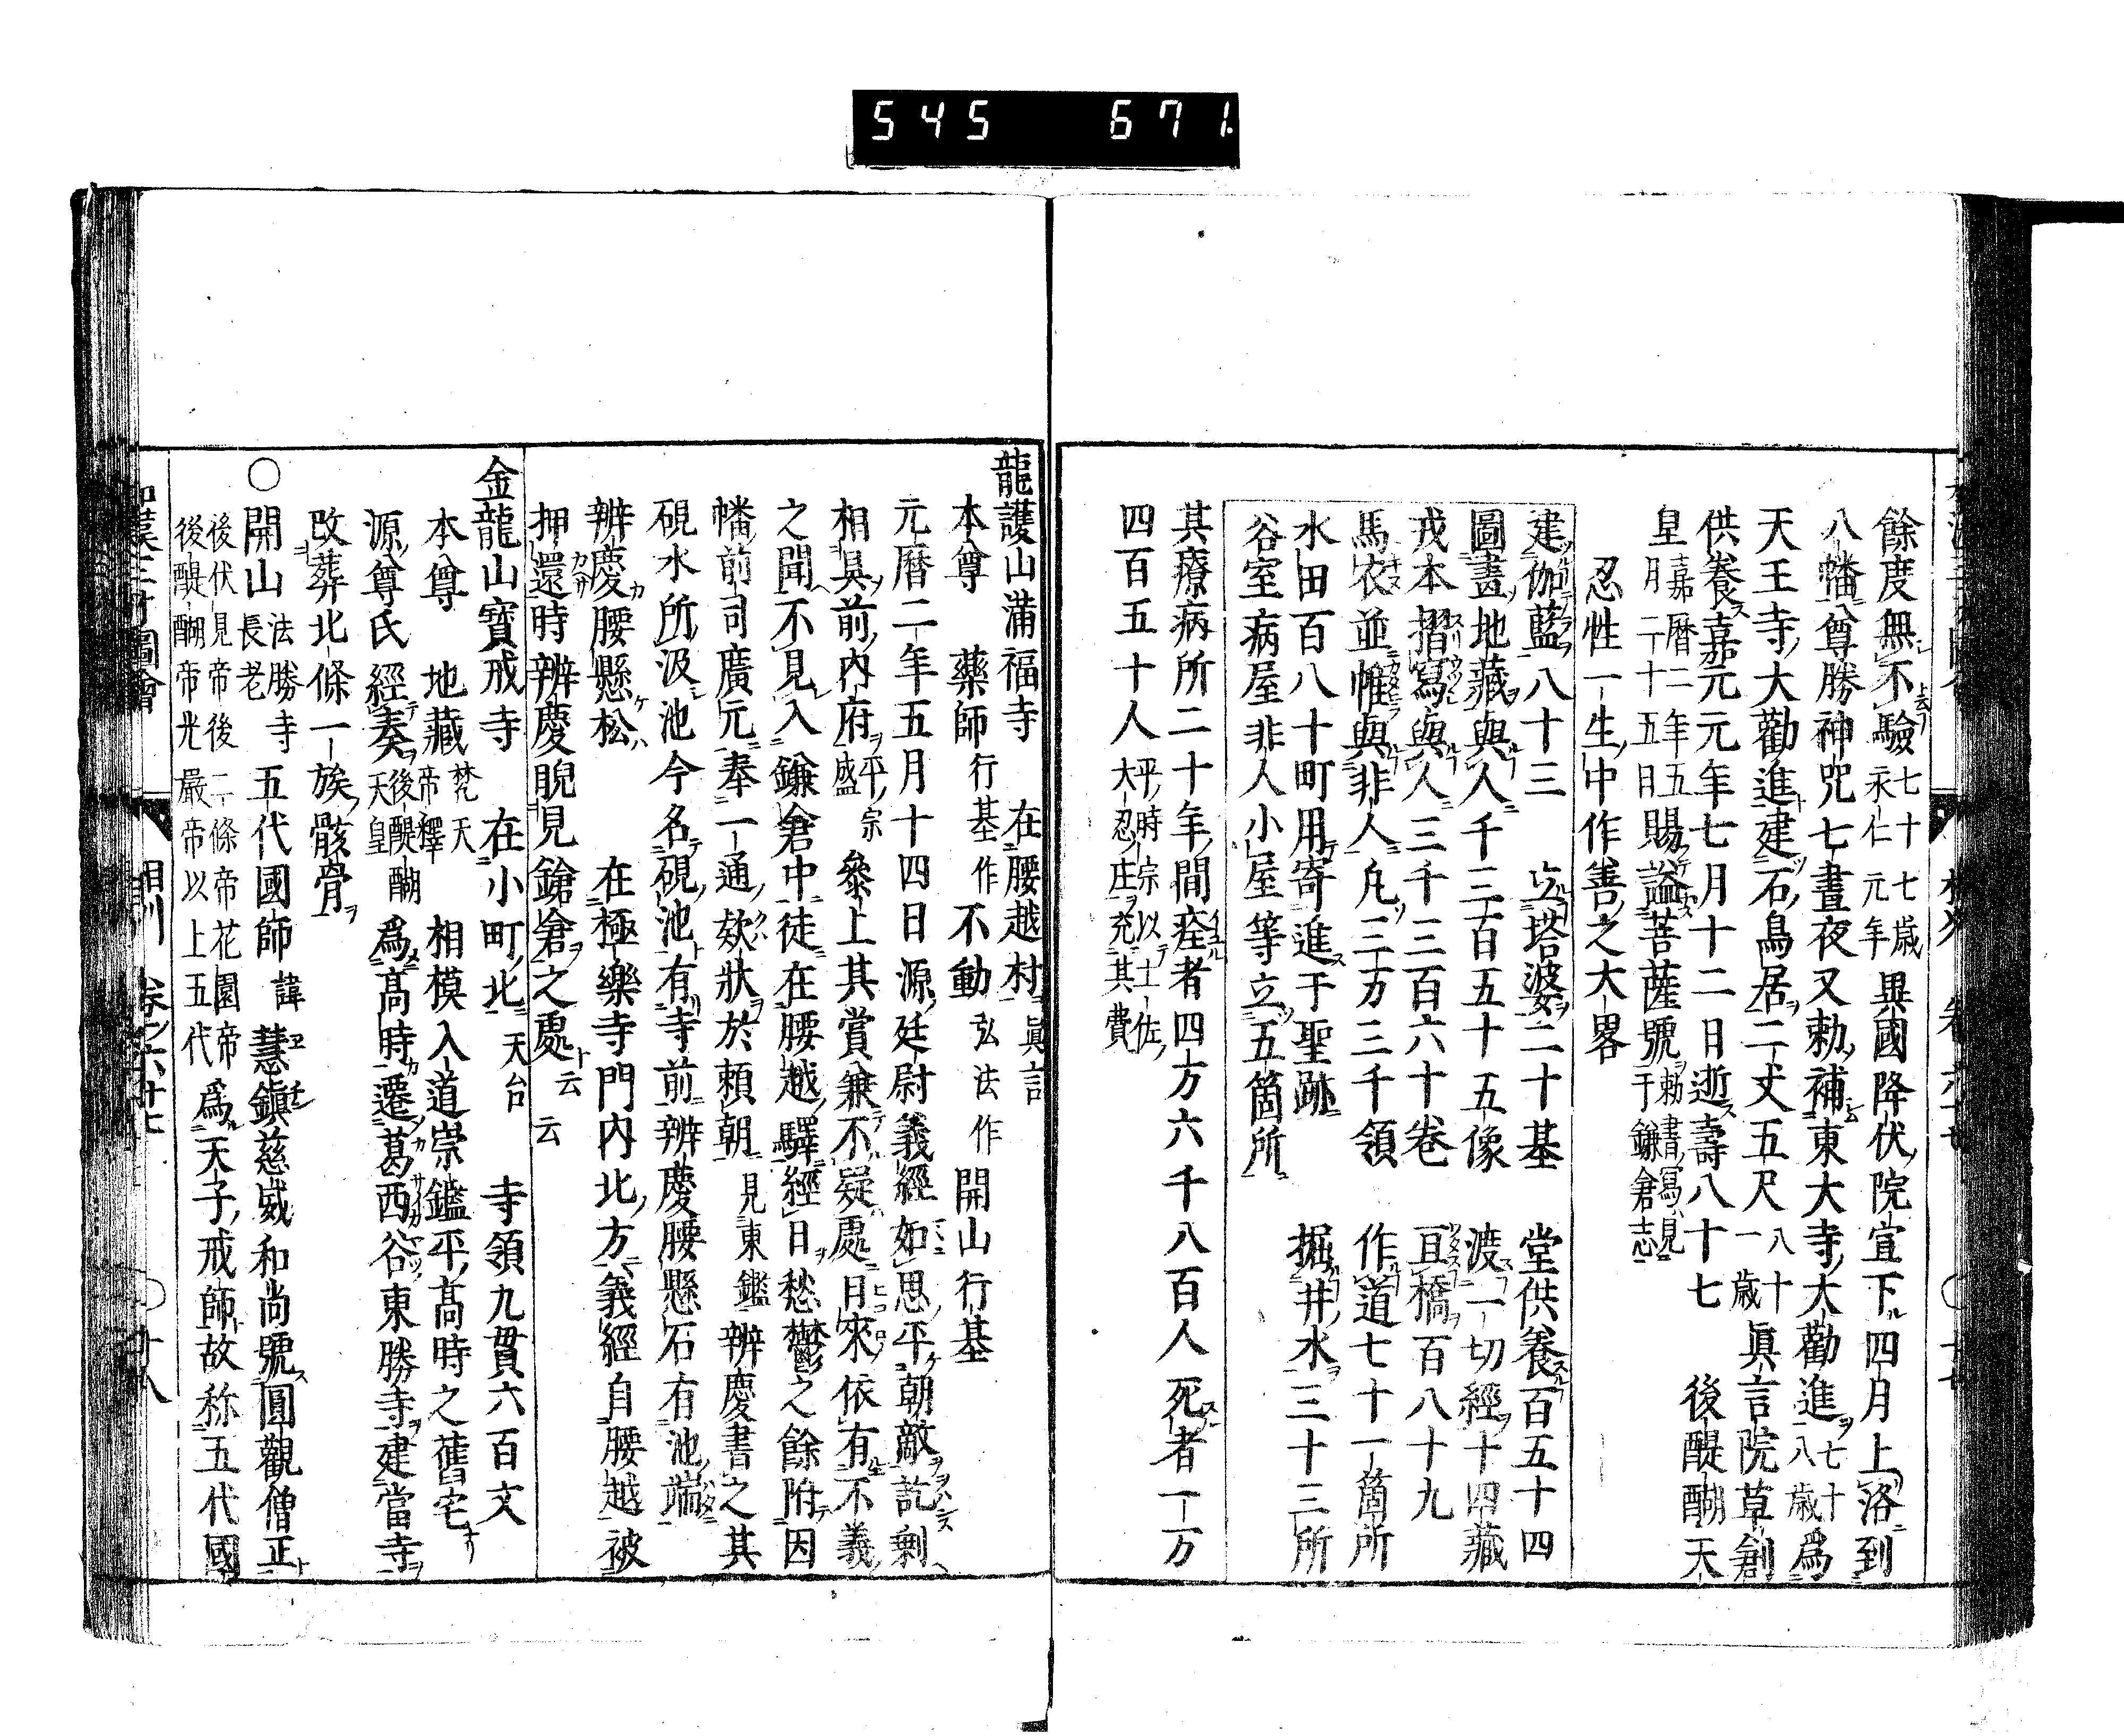 545 671
餘度無不驗七十七歳永仁元年異國降伏院宣下四月上洛到
八幡尊勝神咒七晝夜又勅補東大寺大勸進七十八歳爲
天王寺大勸進建石鳥居二丈五尺八十一歳眞言院草創
供養嘉元元年七月十二日逝壽八十七 後醍醐天
皇嘉暦二年五月二十五日賜謚菩薩號勅書寫見于鎌倉志
忍性一生中作善之大畧
建伽藍八十三 立塔婆二十基 堂供養百五十四
圖畫地藏與人千三百五十五像 渡一切經十四藏
戎本摺寫與人三千三百六十卷 亘橋百八十九
馬衣並帷與非人凡三万三千領 作道七十一箇所
水田百八十町用寄進于聖跡 掘井水三十三所
谷室病屋非人小屋等立五箇所
其療病所二十年間痊者四万六千八百人死者一万
四百五十人平時宗以土佐大忍庄充其費
龍護山滿福寺 在腰越村眞言
本尊 藥師行基作 不動弘法作 開山行基
元暦二年五月十四日源廷尉義經如思平朝敵訖剰
相具前内府平宗盛參上其賞兼不疑處日來依有不義
之聞不見入鎌倉中徒在腰越驛經日愁鬱之餘附因
幡前司廣元奉一通欵狀於頼朝見東鑑 辨慶書之其
硯水所汲池今名硯池有寺前辨慶腰懸石有池端
辨慶腰懸松 在極樂寺門内北方義經自腰越被
押還時辨慶睨見鎗倉之處云云
金龍山寳戒寺 在小町北天台 寺領九貫六百文
本尊 地藏梵天帝釋 相模入道崇鑑平高時之舊宅
源尊氏經奏後醍醐天皇爲高時遷葛西谷東勝寺建當寺
改葬北條一族骸骨
○開山法勝寺長老 五代國師諱慧鎭慈威和尚號圓觀僧正
後伏見帝後二條帝花園帝後醍醐帝光嚴帝以上五代爲天子戒師故称五代國
和漢三才圖會 相刕 卷ノ六十七 ○十八